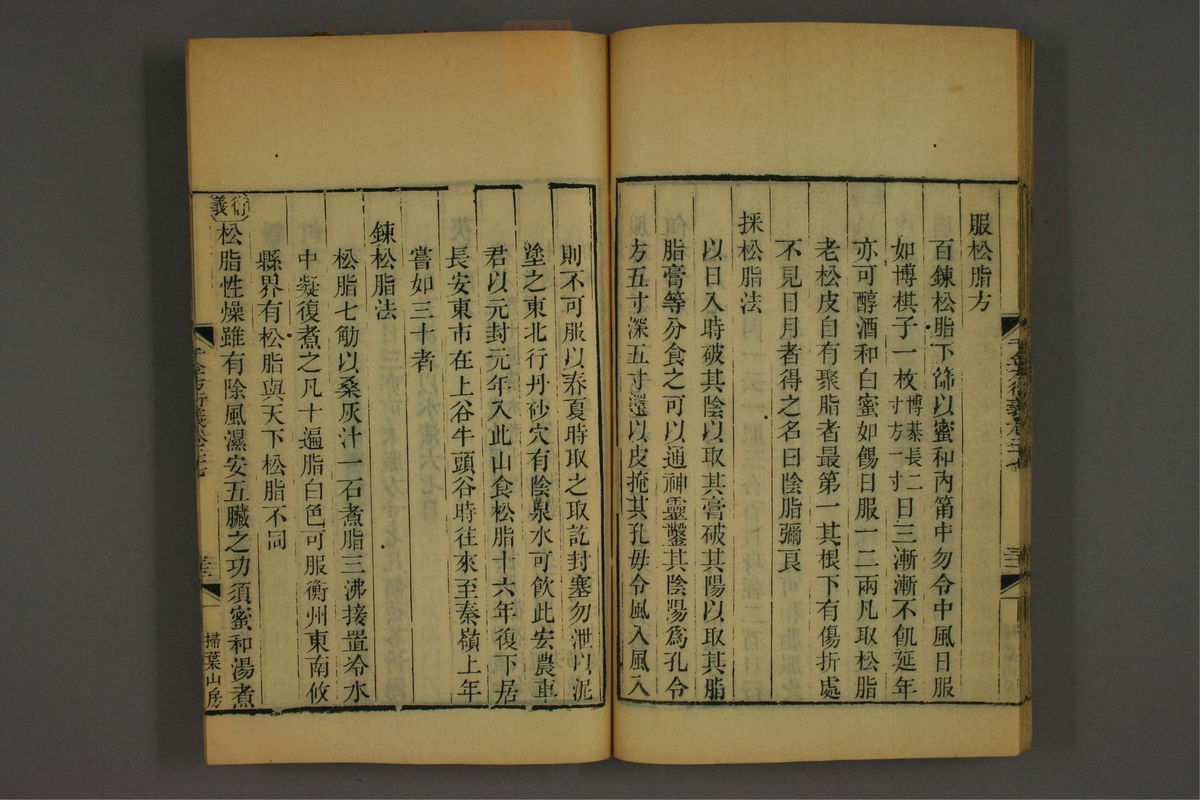 服松脂方
百鍊松脂下篩以蜜和內筩中勿令中風日服
如博棋子一枚博棊長二寸方一寸日三漸漸不飢延年
亦可醇酒和白蜜如餳日服一二兩凡取松脂
老松皮自有聚脂者最第一其根下有傷折處
不見日月者得之名曰陰脂彌良
採松脂法
以日入時破其陰以取其膏破其陽以取其脂
脂膏等分食之可以通神靈鑿其陰陽爲孔令
方五寸深五寸還以皮掩其孔毋令風入風入
則不可服以春夏時取之取訖封塞勿泄以泥
塗之東北行丹砂穴有陰泉水可飲此宏農車
君以元封元年入此山食松脂十六年復下居
長安東市在上谷牛頭谷時往來至秦嶺上年
嘗如三十者
鍊松脂法
松脂七觔以桑灰汁一石煮脂三沸接置冷水
中凝復煮之凡十遍脂白色可服衡州東南攸
縣界有松脂與天下松脂不同
衍義
松脂性燥雖有除風濕安五臟之功須蜜和湯煮
千金方衍義卷二十七
三十二
掃葉山房